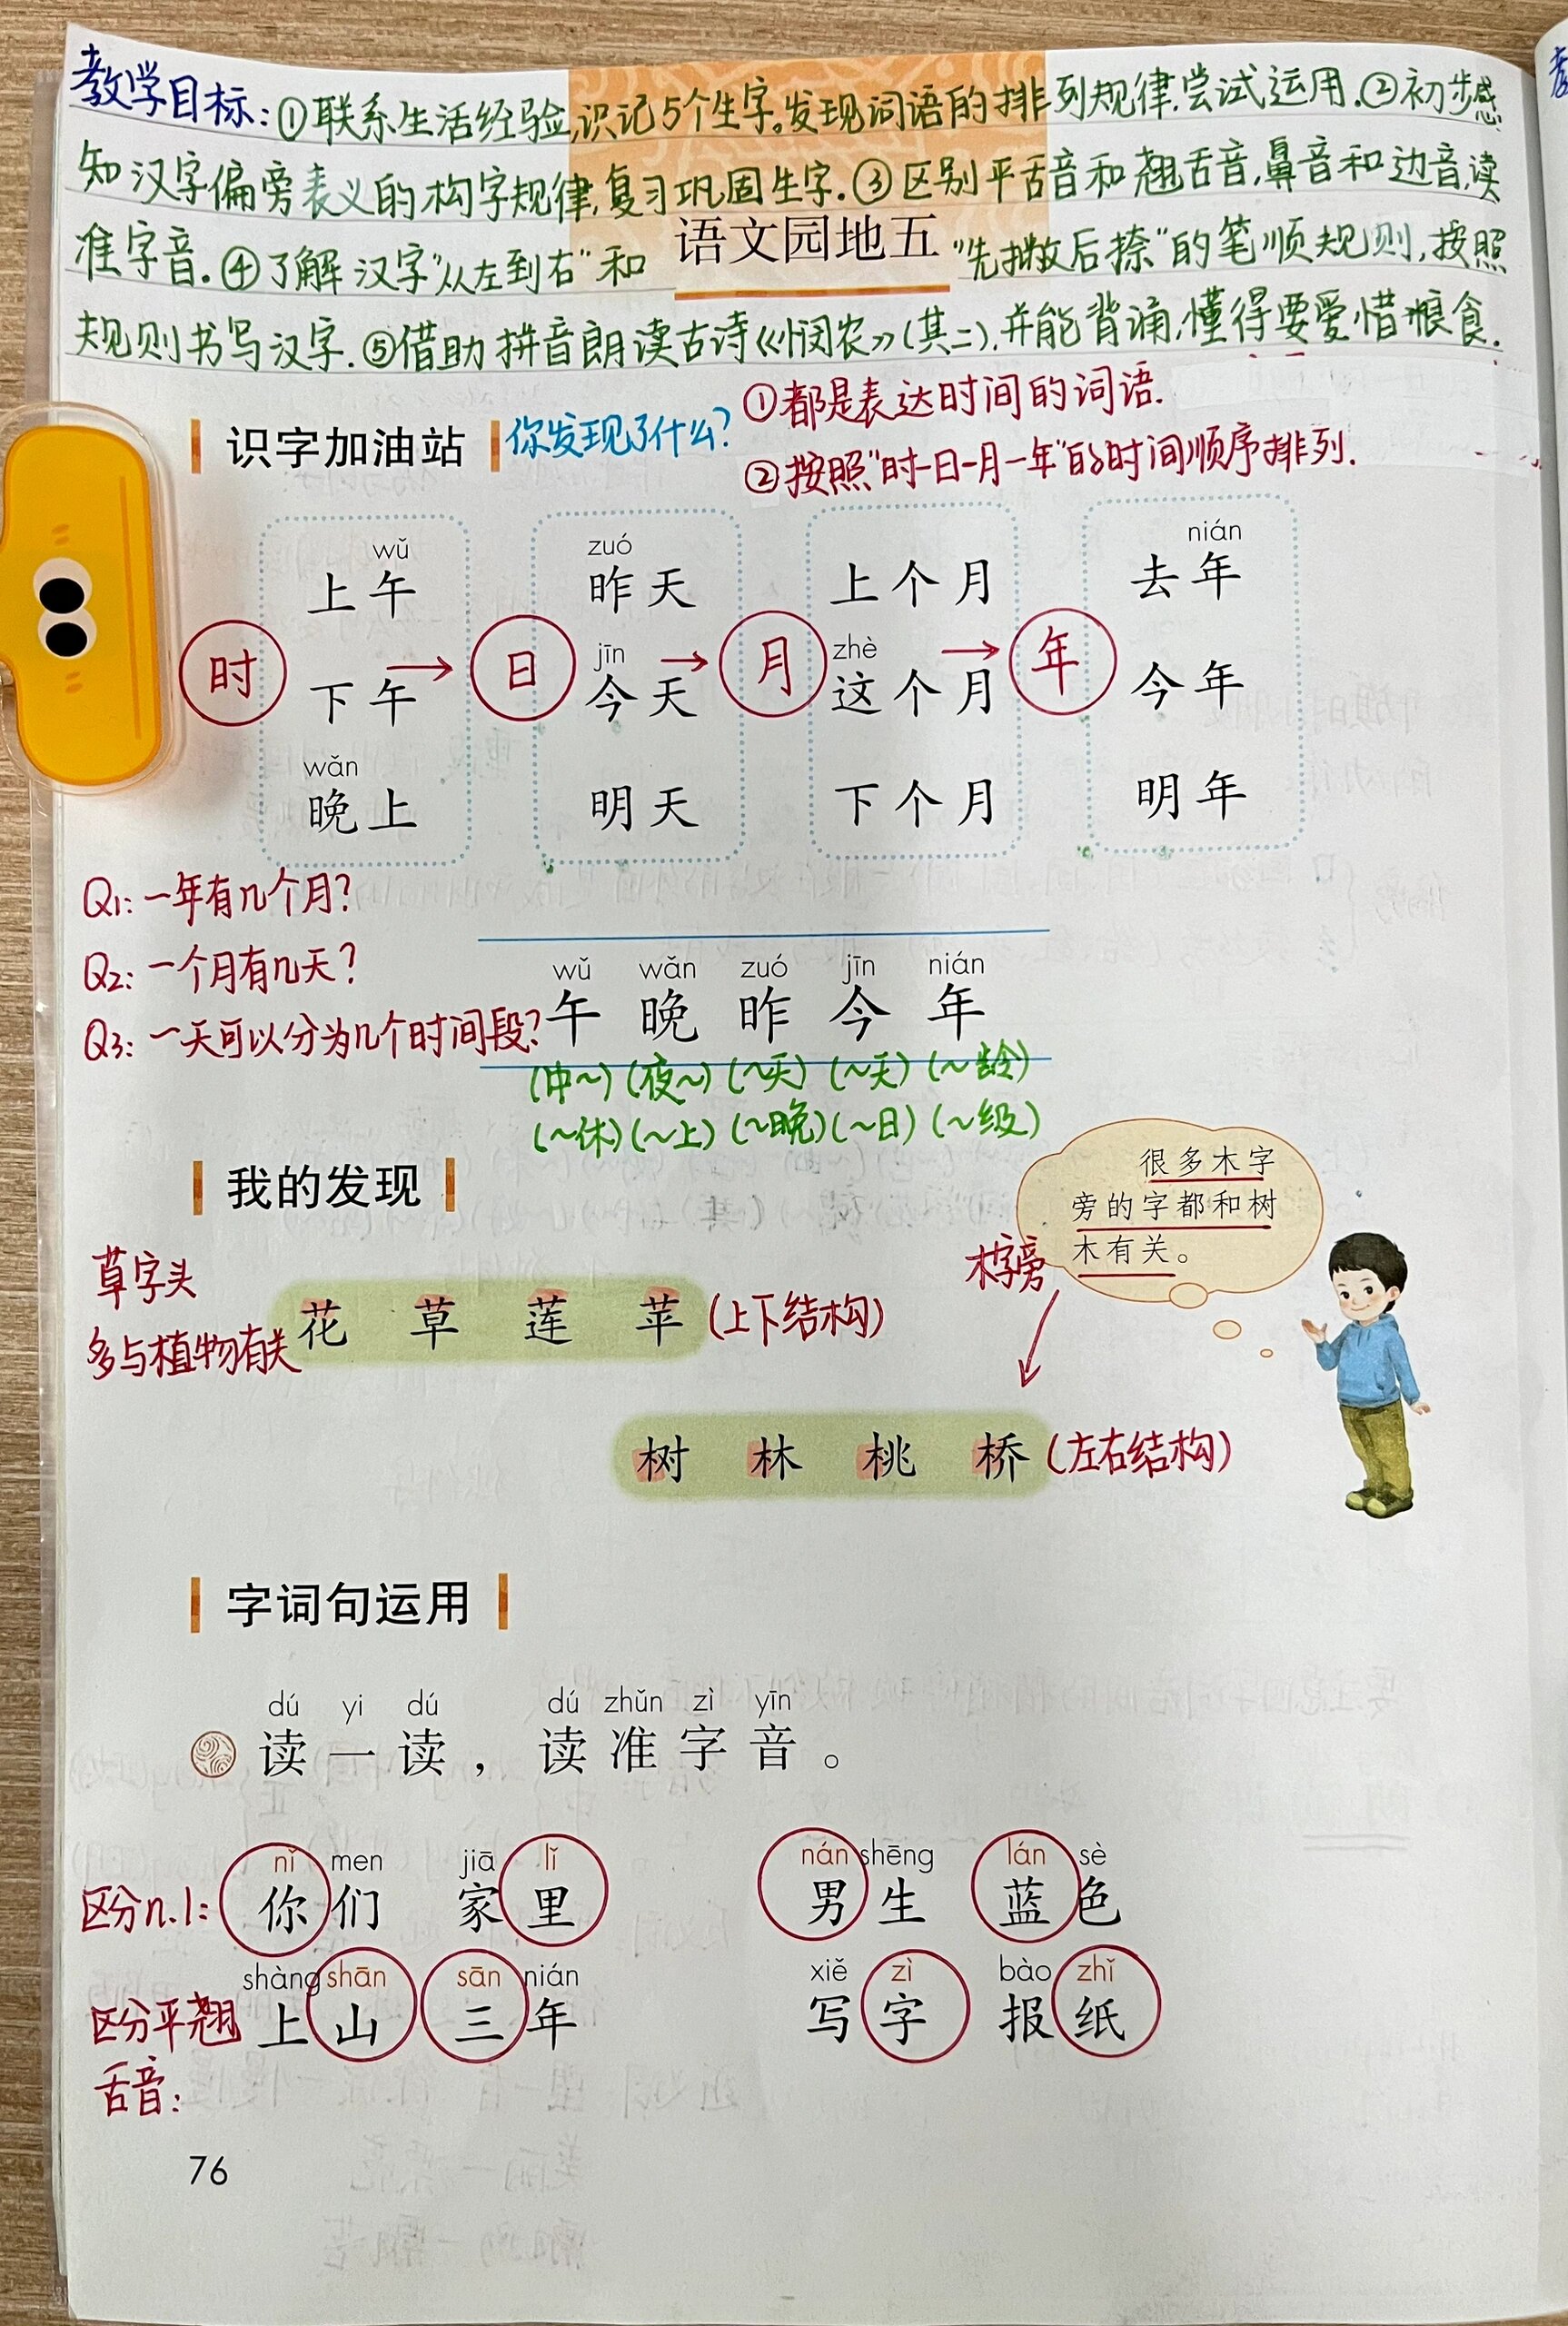 教学目标:①联系生活经验,识记5个生字。发现词语的排列规律.尝试运用.②初步感
知汉字偏旁表义的构字规律,复习巩固生字.③区别平舌音和翘舌音,鼻音和边音,读
准字音.④了解汉字"从左到右"和 语文园地五 "先撇后捺"的笔顺规则,按照
规则书写汉字.⑤借助拼音朗读古诗《悯农》(其二),并能背诵,懂得要爱惜粮食.
识字加油站 你发现了什么?
①都是表达时间的词语.
②按照"时-日-月-年"的时间顺序排列.
wǔ zuó nián
上午 昨天 上个月 去年
jīn zhè
时 → 日 → 月 → 年
下午 今天 这个月 今年
wǎn
晚上 明天 下个月 明年
Q1:一年有几个月?
Q2:一个月有几天?
Q3:一天可以分为几个时间段?
wǔ wǎn zuó jīn nián
午 晚 昨 今 年
(中~)(夜~)(~天)(~天)(~龄)
(~休)(~上)(~晚)(~日)(~级)
我的发现
很多木字
旁的字都和树
木有关。
木字旁
草字头
多与植物有关
花 草 莲 苹 (上下结构)
树 林 桃 桥 (左右结构)
字词句运用
dú yi dú dú zhǔn zì yīn
读一读,读准字音。
nǐ men jiā lǐ nán shēng lán sè
区分n.l: 你们 家里 男生 蓝色
shàng shān sān nián xiě zì bào zhǐ
区分平翘 上山 三年 写字 报纸
舌音:
76